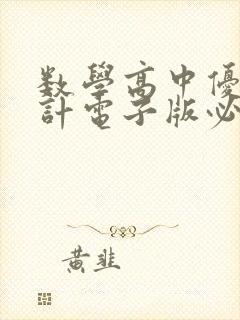 数學高中優
計電子版必
黃韭